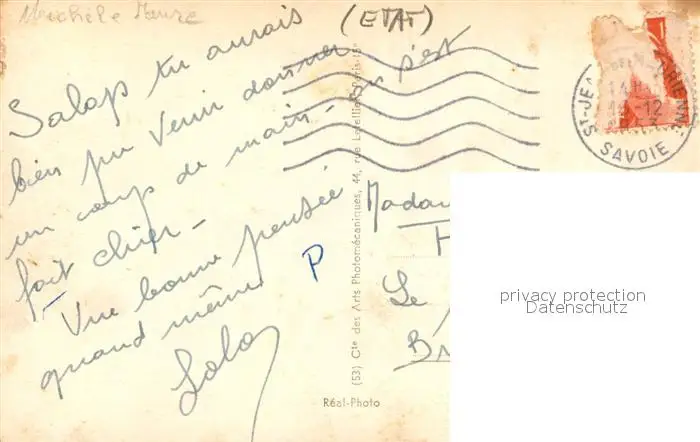 Michèle
(ETAT)
Salop tu aurais
bien pu venir donner
un coup de main - on s'est
fait chier -
Une bonne pensée
quand même
Lolo
P
Réal-Photo
(53) Cie des Arts Photomécaniques, 44, rue Letellier, Paris-15e
ST-JE
RIENNE
14H
12
SAVOIE
Madam
Le
privacy protection
Datenschutz